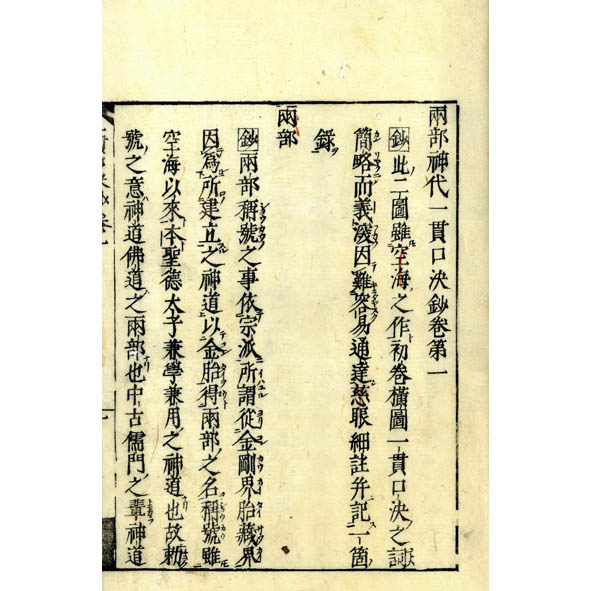 兩部神代一貫口決鈔卷第一
鈔此二圖雖空海之作初卷横圖一貫口决之詞
簡略而義淺因難容易通達慈眼細註并記二箇
錄
兩部
鈔兩部稱號之事依宗派所謂從金剛界胎藏界
因爲所建立之神道以金胎得兩部之名稱號雖
空海以來本聖德太子兼學兼用之神道也故勅
號之意神道佛道之兩部也中古儒門之輩神道